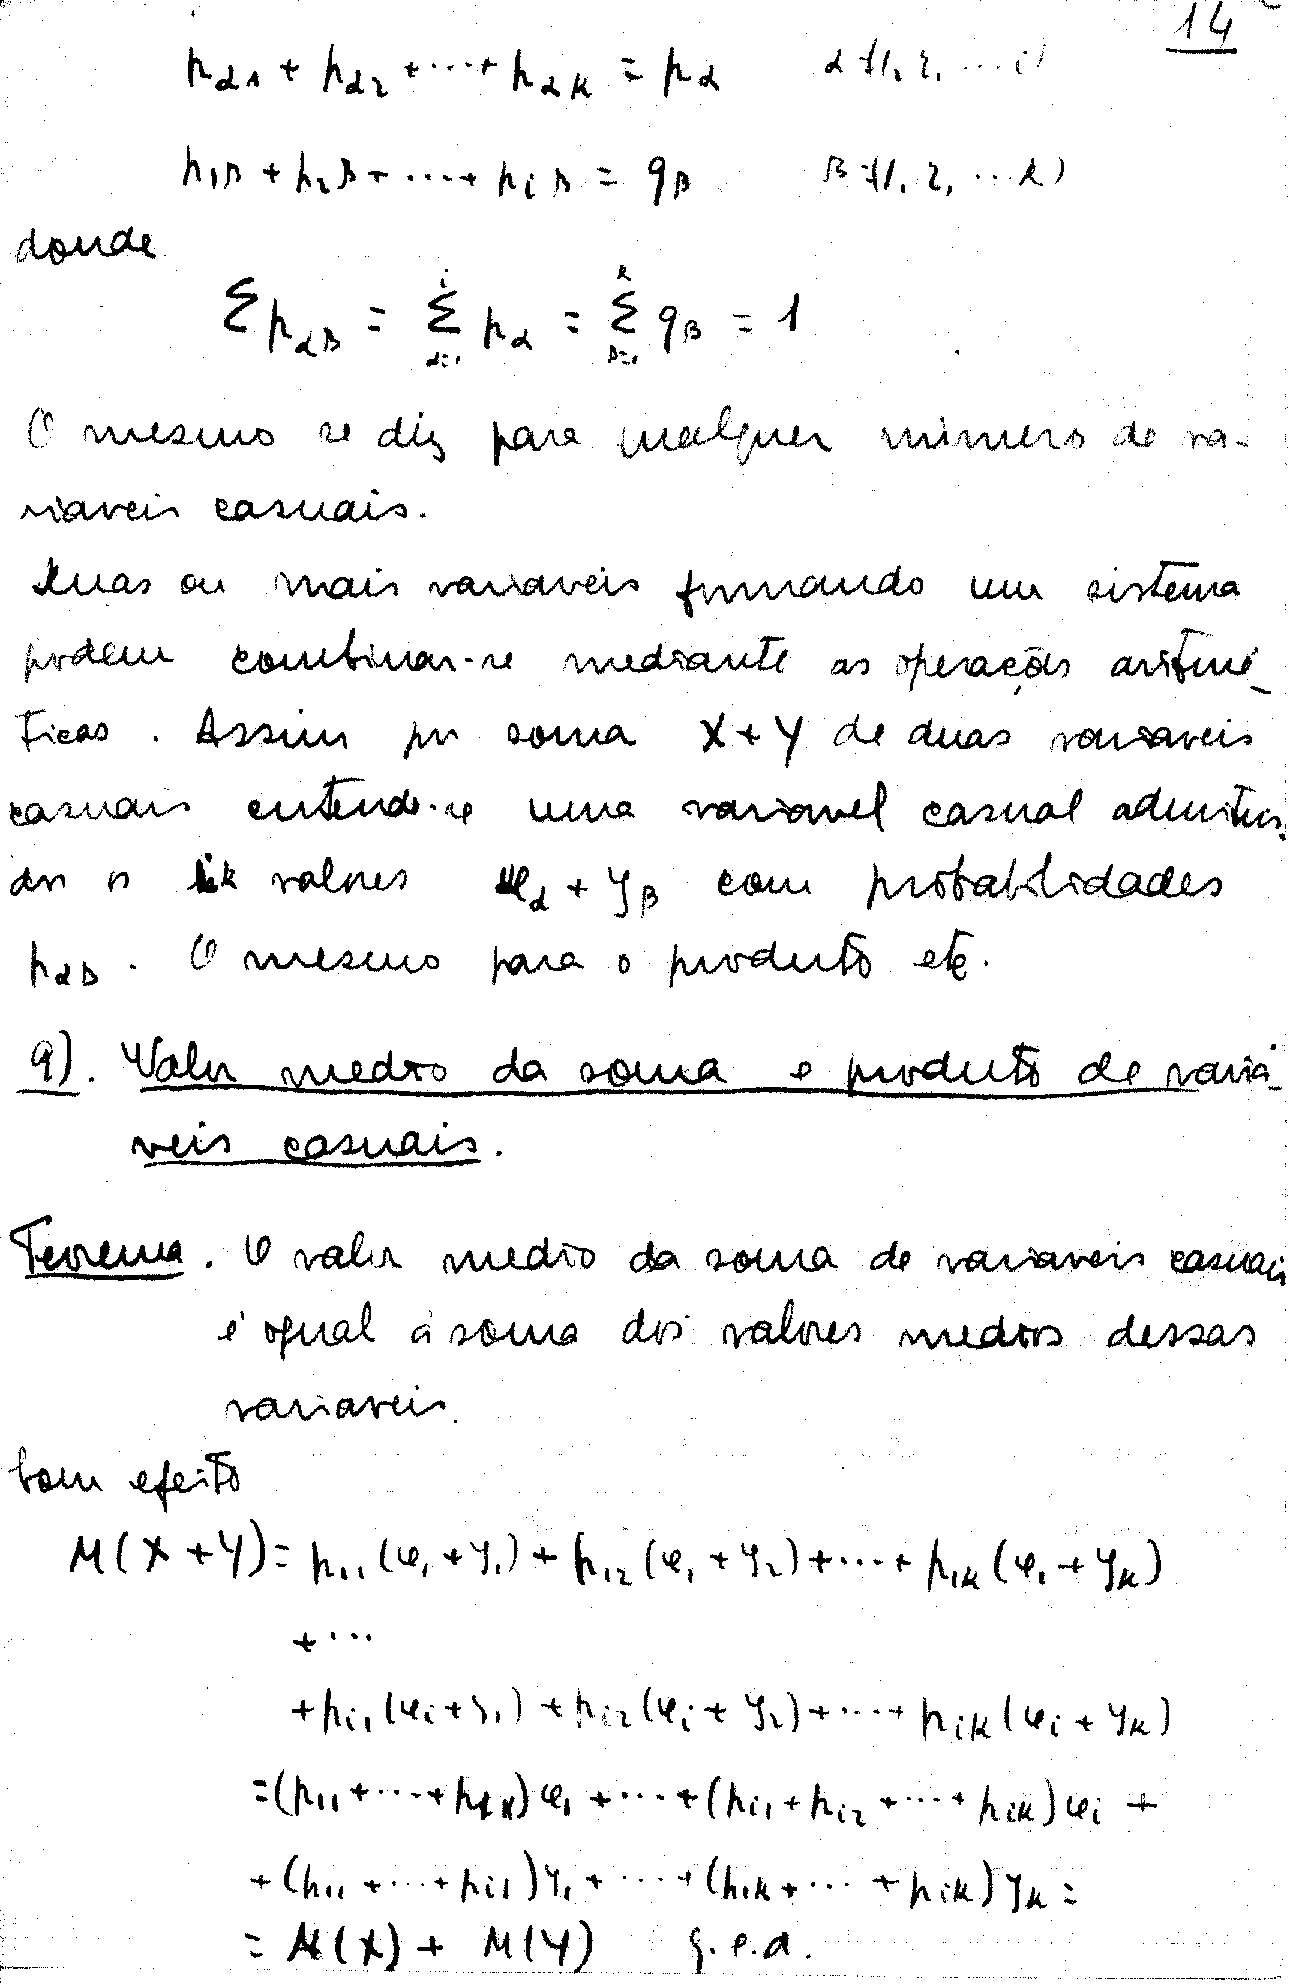 14
p_{α1} + p_{α2} + ··· + p_{αk} = p_α   α = (1, 2, ... i)
p_{1β} + p_{2β} + ··· + p_{iβ} = q_β   β = (1, 2, ... k)
donde
Σ p_{αβ} = Σ_{α=1}^{i} p_α = Σ_{β=1}^{k} q_β = 1
O mesmo se diz para qualquer número de va-
riaveis casuais.
Duas ou mais variaveis formando um sistema
podem combinar-se mediante as operações aritmé-
ticas. Assim por soma X + Y de duas variaveis
casuais entende-se uma variavel casual admitin-
do os ik valores x_α + y_β com probabilidades
p_{αβ}. O mesmo para o produto etc.
9). Valor medio da soma e produto de variá-
veis casuais.
Teorema. O valor medio da soma de variaveis casuais
é igual á soma dos valores medios dessas
variaveis.
Com efeito
M(X + Y) = p_{11}(x_1 + y_1) + p_{12}(x_1 + y_2) + ··· + p_{1k}(x_1 + y_k)
+ ···
+ p_{i1}(x_i + y_1) + p_{i2}(x_i + y_2) + ··· + p_{ik}(x_i + y_k)
= (p_{11} + ··· + p_{1k}) x_1 + ··· + (p_{i1} + p_{i2} + ··· + p_{ik}) x_i +
+ (p_{11} + ··· + p_{i1}) y_1 + ··· + (p_{1k} + ··· + p_{ik}) y_k =
= M(X) + M(Y)   q.e.d.